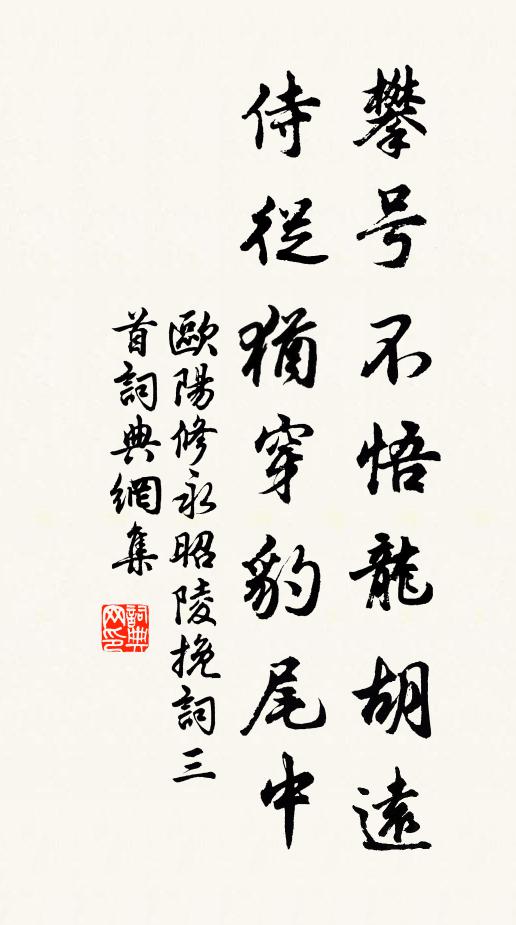 攀号不悟龍胡遠
侍從猶穿豹尾中
歐陽修永昭陵挽詞三
首詞典網集
詞典网印